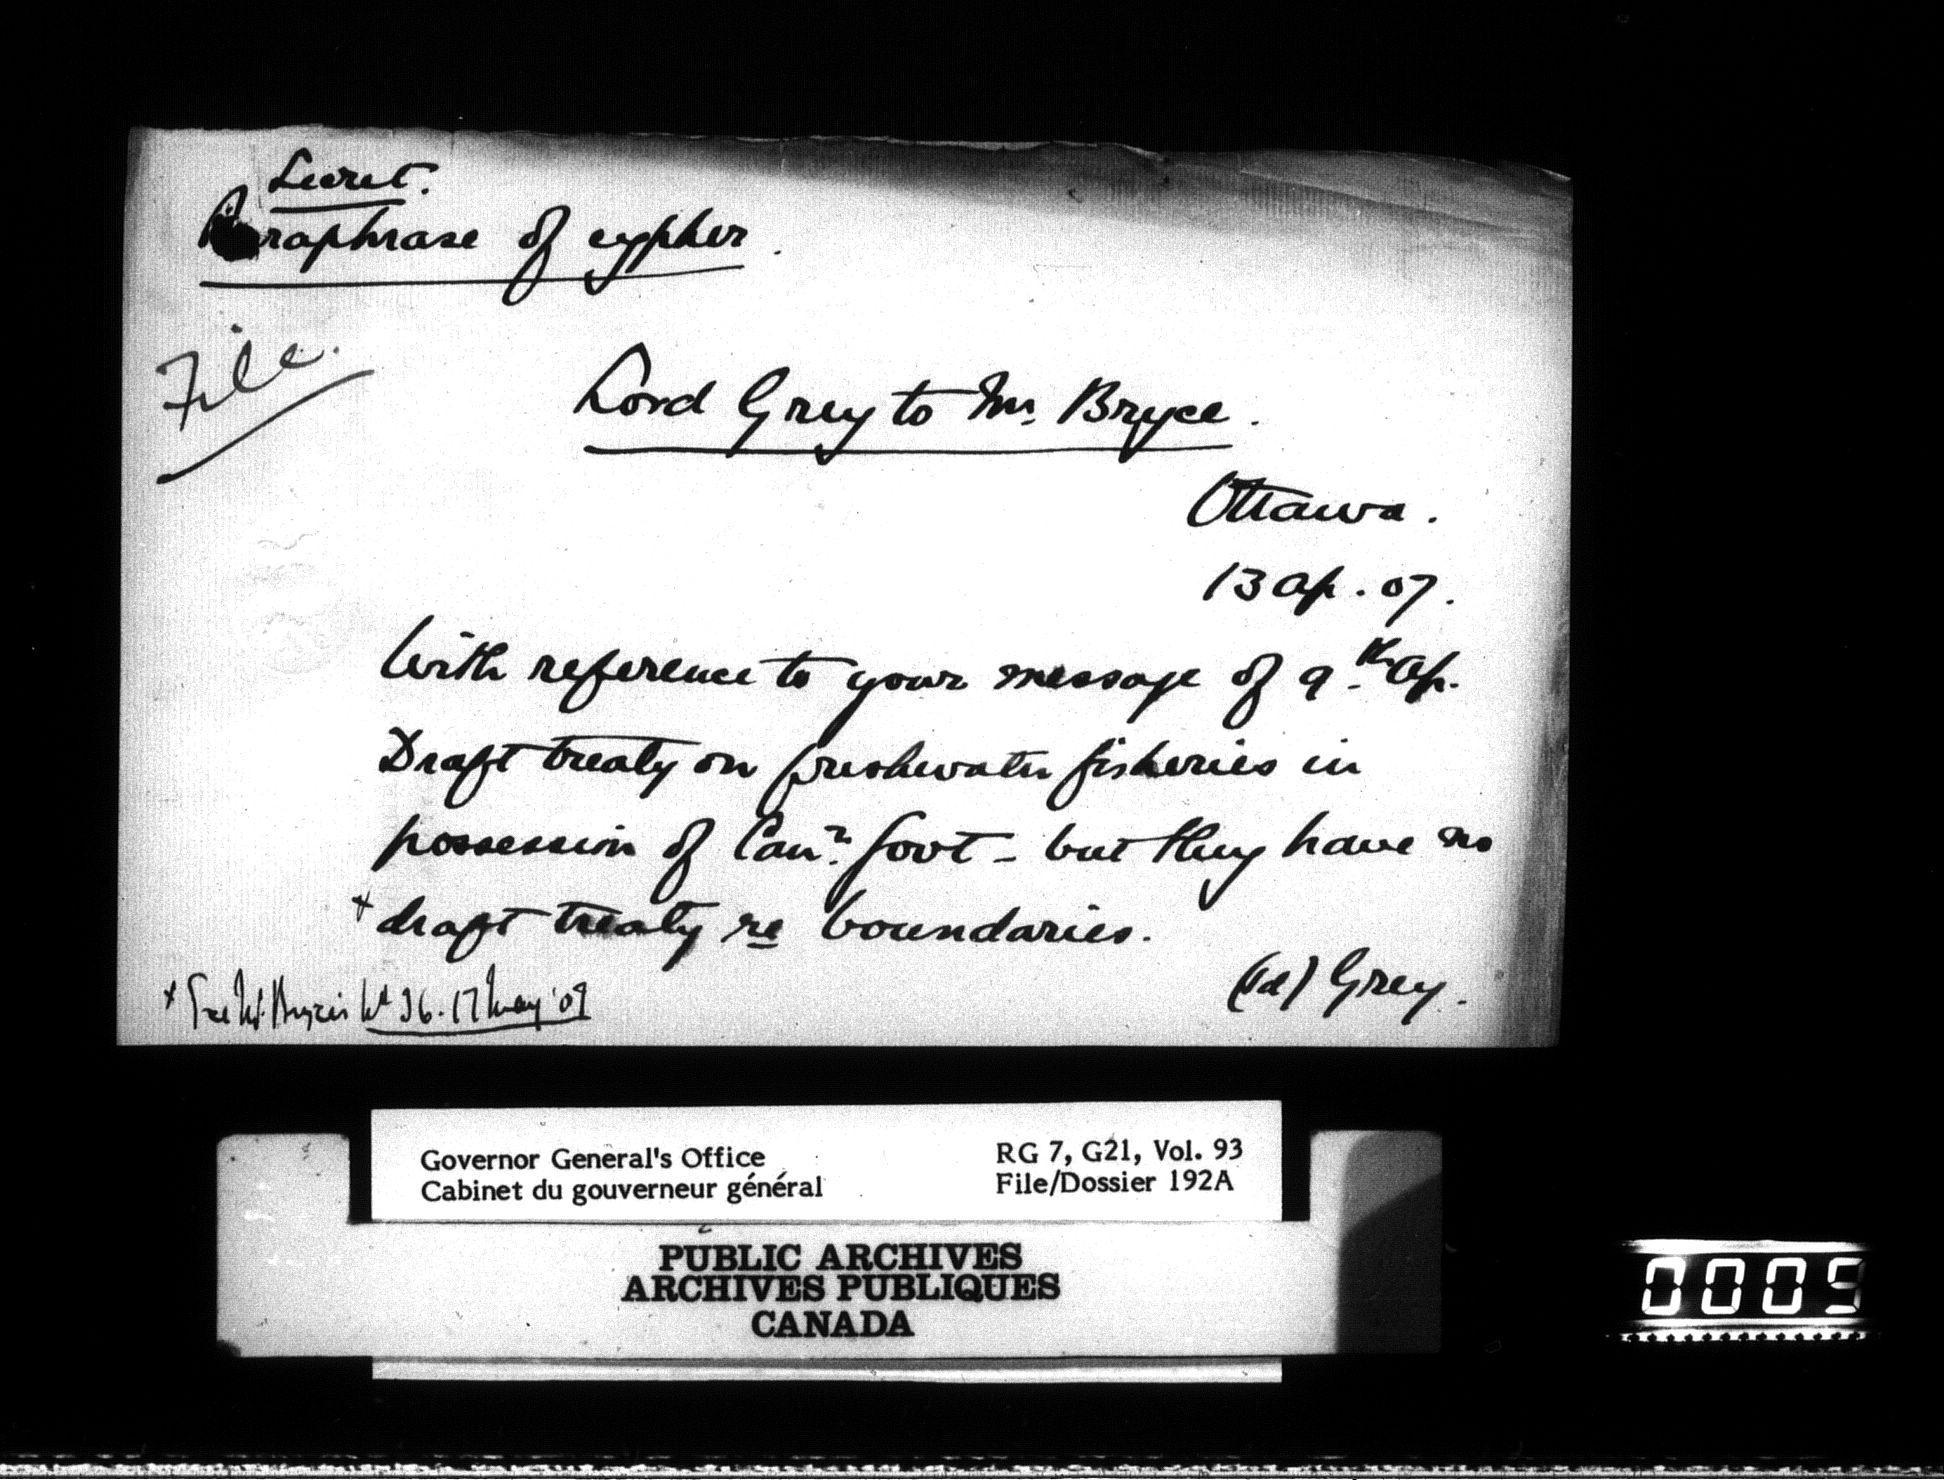 Secret.
Paraphrase of cypher.
File.
Lord Grey to Mr. Bryce.
Ottawa.
13 Ap. 07.
With reference to your message of 9th Ap.
Draft treaty on freshwater fisheries in
possession of Cann. Govt - but they have no
x draft treaty re boundaries.
(sd) Grey.
x See Mr. Bryce's 36. 17 May '07
Governor General's Office
Cabinet du gouverneur général
RG 7, G21, Vol. 93
File/Dossier 192A
PUBLIC ARCHIVES
ARCHIVES PUBLIQUES
CANADA
0005